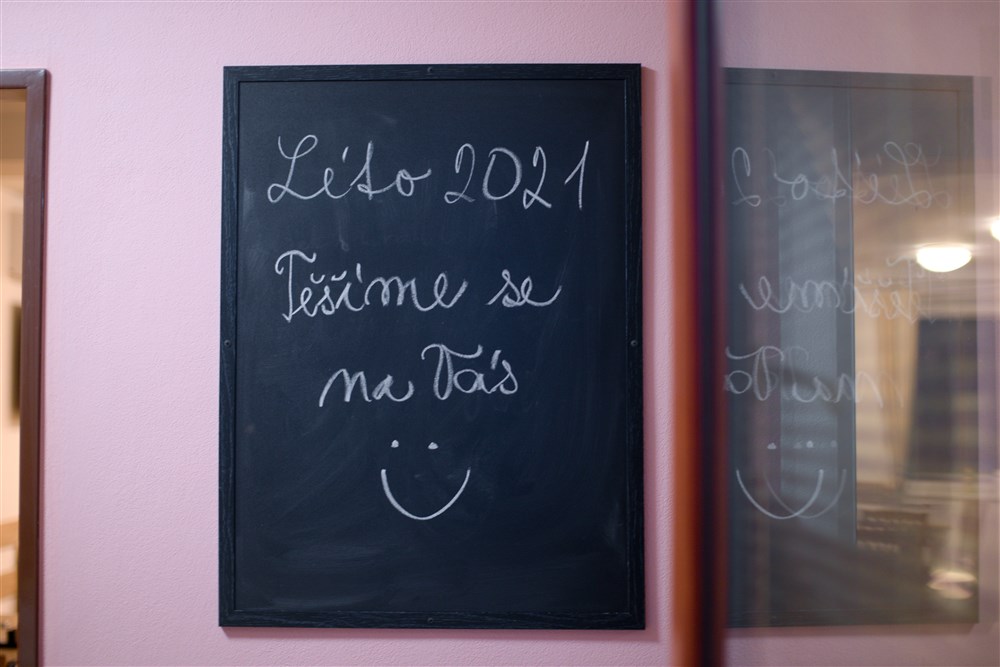 Léto 2021
Těšíme se
na Vás